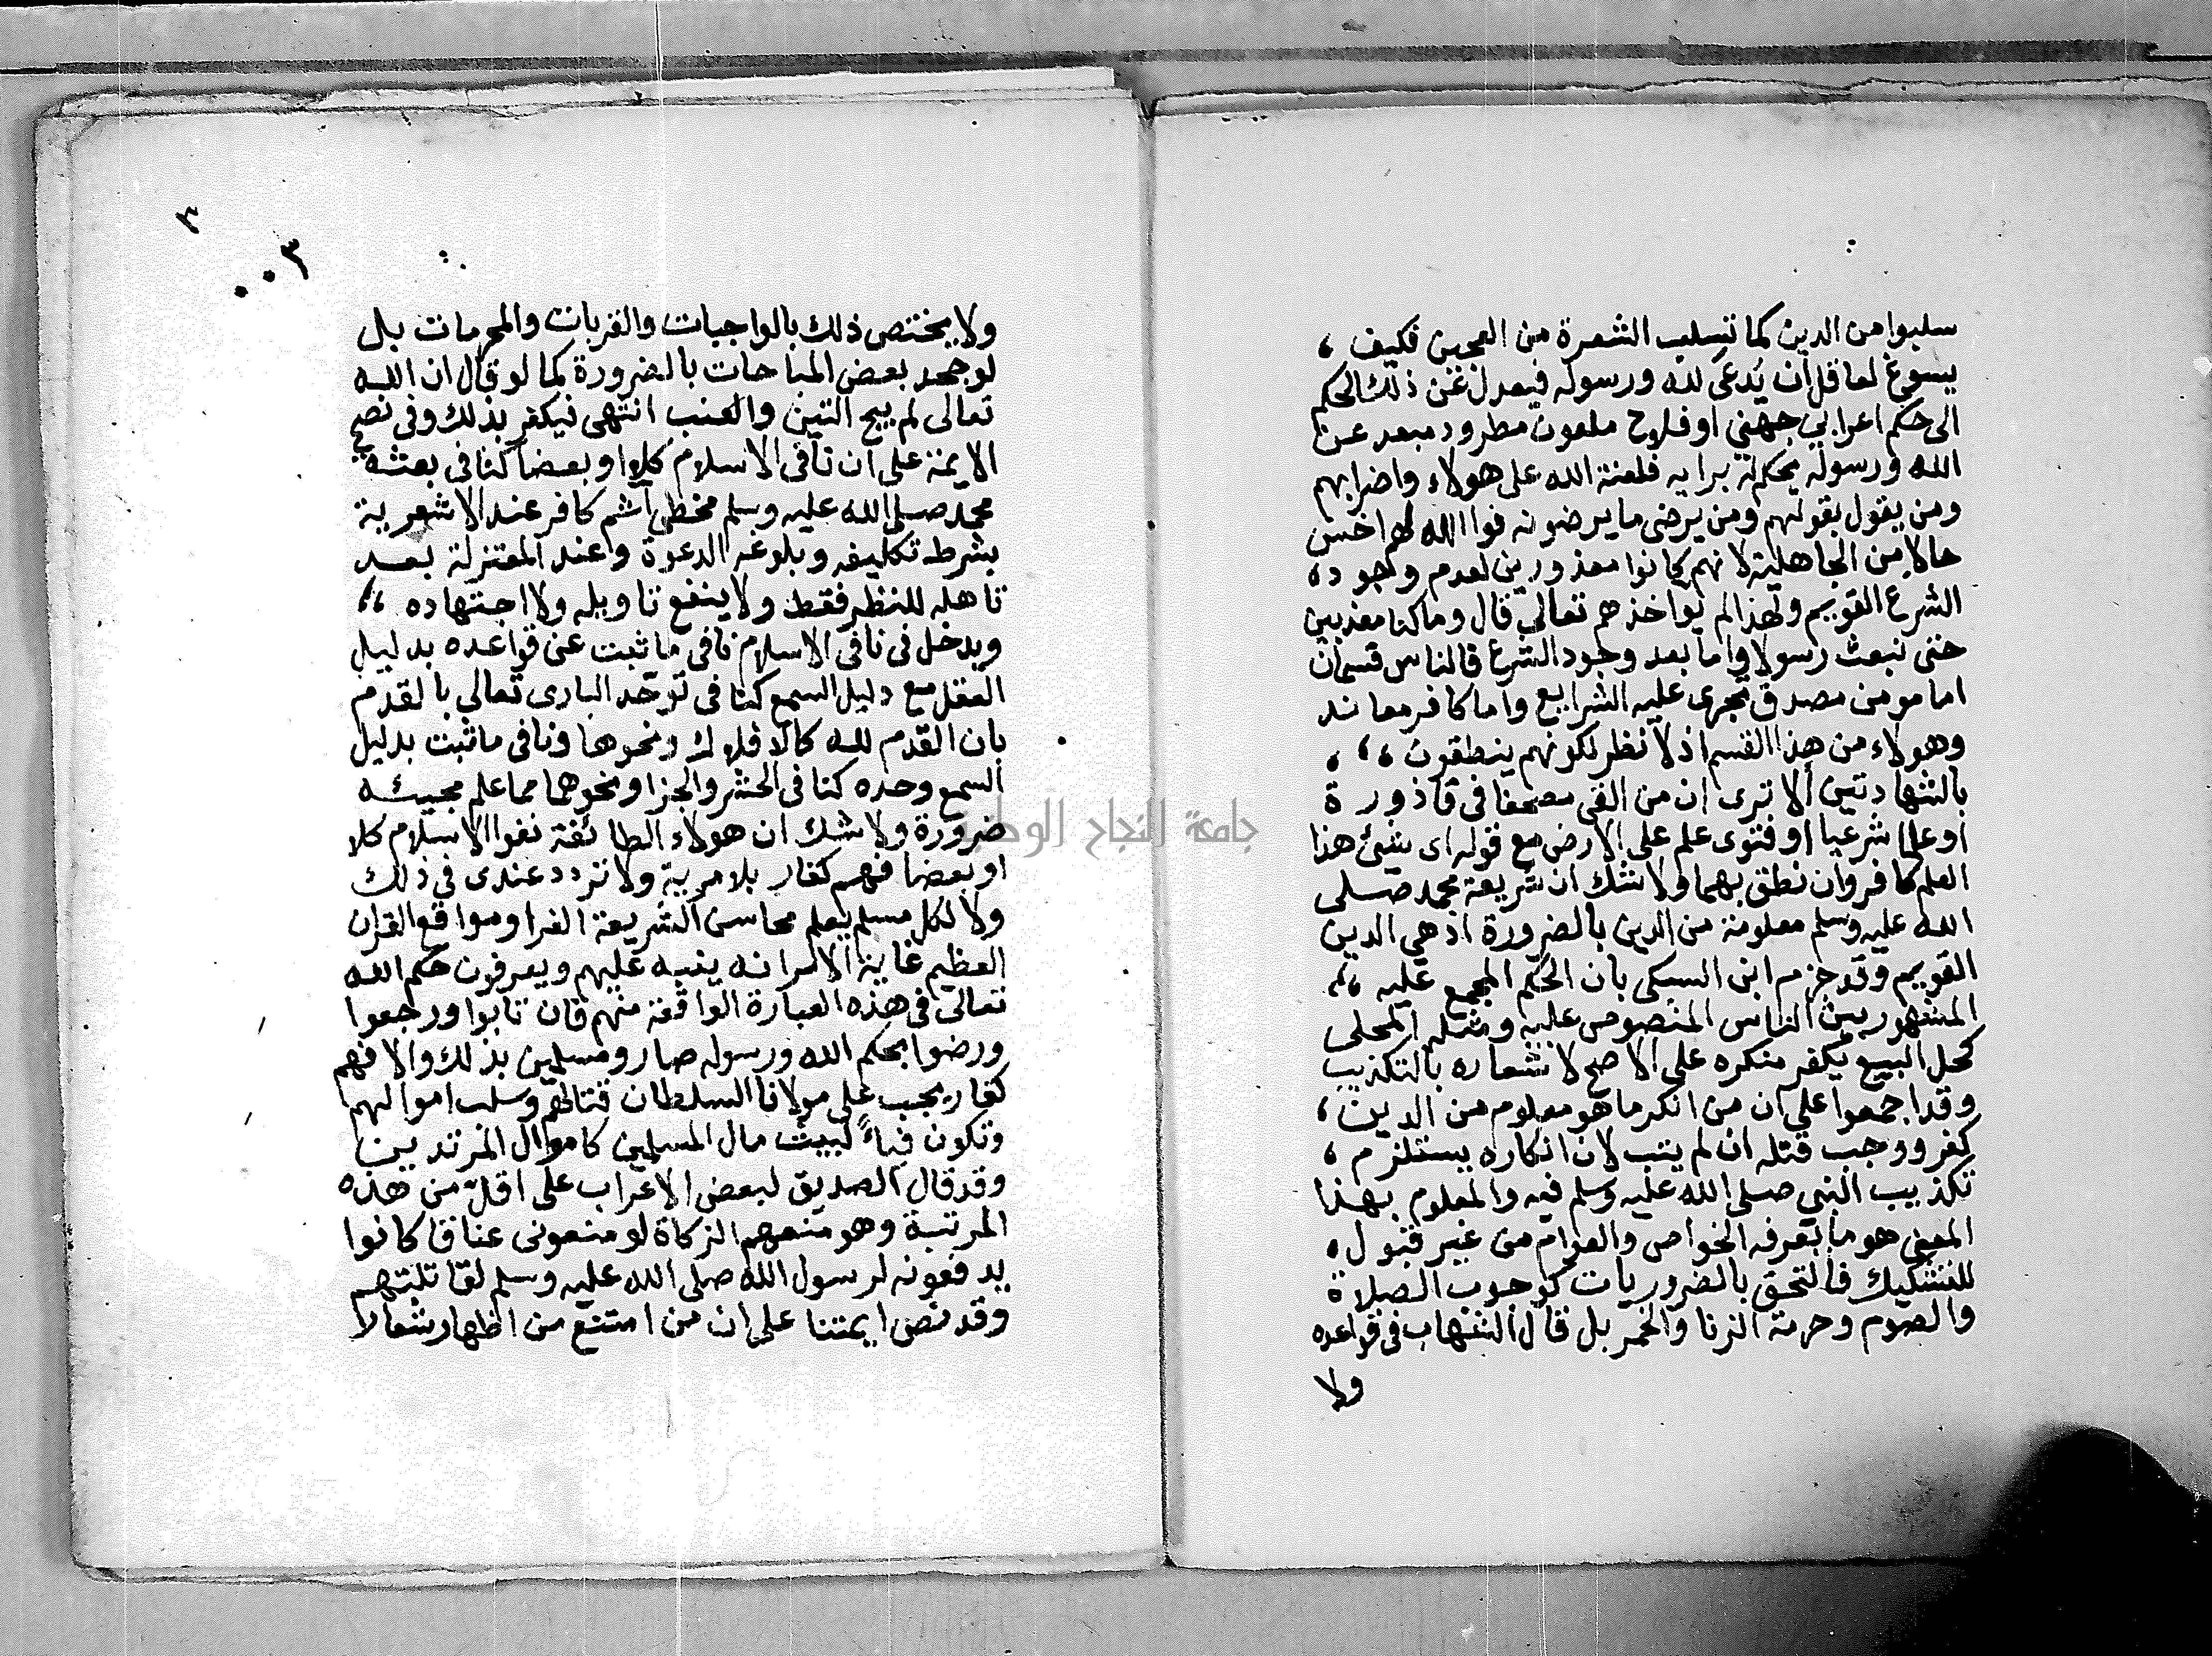 سلبوا من الدين كما تسلب الشعرة من العجين فكيف ،
يسوغ لعاقل أن يُدعى لله ورسوله فيعدل عن ذلك الحكم
الى حكم اعرابي جهني او فلاح ملعون مطرود مبعد عن
الله ورسوله يحكم له برايه فلعنة الله على هولاء واضرابهم
ومن يقول بقولهم ومن يرضى ما يرضونه فوالله لهم اخس
حالا من الجاهلية لانهم كانوا معذورين لعدم وجود ،
الشرع القويم ولهذا لم يواخذهم تعالى قال وما كنا معذبين
حتى نبعث رسولا واما بعد وجود الشرع فالناس قسمان
اما مومن مصدق تجرى عليه الشرايع واما كافر معاند
وهولاء من هذا القسم اذ لا نظر لكونهم ينطقون ،، ،
بالشهادتين ألا ترى ان من القى مصحفا فى قاذورة
او علما شرعيا او فتوى علم على الارض مع قوله اى شيئ هذا
العلم كافر وان نطق بهما ولا شك ان شريعة محمد صلى
الله عليه وسلم معلومة من الدين بالضرورة اذ هي الدين
القويم وقد جزم ابن السبكى بان الحكم المجمع عليه ،،
المشهور بين الناس المنصوص عليه ومثله المحلى
كحل البيع يكفر منكره على الاصح لاشعاره بالتكذيب
وقد اجمعوا على ان من انكر ما هو معلوم من الدين ،
كفر ووجب قتله ان لم يتب لان انكاره يستلزم ،
تكذيب النبي صلى الله عليه وسلم فيه والمعلوم بهذا
المعنى هو ما يعرفه الخواص والعوام من غير قبول ،
للتشكيك فالتحق بالضروريات كوجوب الصلاة
والصوم وحرمة الزنا والخمر بل قال الشهاب فى قواعده
ولا
٣
٠٠٣
ولا يختص ذلك بالواجبات والقربات والمحرمات بل
لو جحد بعض المباحات بالضرورة كما لو قال ان الله
تعالى لم يبح التين والعنب انتهى فيكفر بذلك وفى نصح
الايمة على أن نافى الاسلام كلا او بعضا كنافى بعثة
محمد صلى الله عليه وسلم مخطئ آثم كافر عند الاشعرية
بشرط تكليفه وبلوغه الدعوة وعند المعتزلة بعد
تاهله للنظر فقط ولا ينفع تاويله ولا اجتهاده ،،
ويدخل فى نافى الاسلام نافى ما ثبت عن قواعده بدليل
العقل مع دليل السمع كنافى توحّد البارى تعالى بالقدم
بان القدم لله كالافلاك ونحوها ونافى ما ثبت بدليل
السمع وحده كنافى الحشر والجزا ونحوهما مما علم مجيئه
ضرورة ولا شك ان هولاء الطائفة نفوا الاسلام كلا
او بعضا فهم كفار بلا مرية ولا تردد عندى في ذلك
ولا لكل مسلم يعلم محاسن الشريعة الغرا ومواقع القران
العظيم غاية الامر انه ينبه عليهم ويعرفون حكم الله
تعالى فى هذه العبارة الواقعة منهم فان تابوا ورجعوا
ورضوا بحكم الله ورسوله صاروا مسلمين بذلك والا فهم
كفار يجب على مولانا السلطان قتالهم وسلب اموالهم
وتكون فياءً لبيت مال المسلمين كاموال المرتدين
وقد قال الصديق لبعض الاعراب على اقل من هذه
المرتبة وهو منعهم الزكاة لو منعونى عناقا كانوا
يدفعونه لرسول الله صلى الله عليه وسلم لقاتلتهم
وقد نص ايمتنا على ان من امتنع من اظهار شعا لا
جامعة النجاح الوطنية